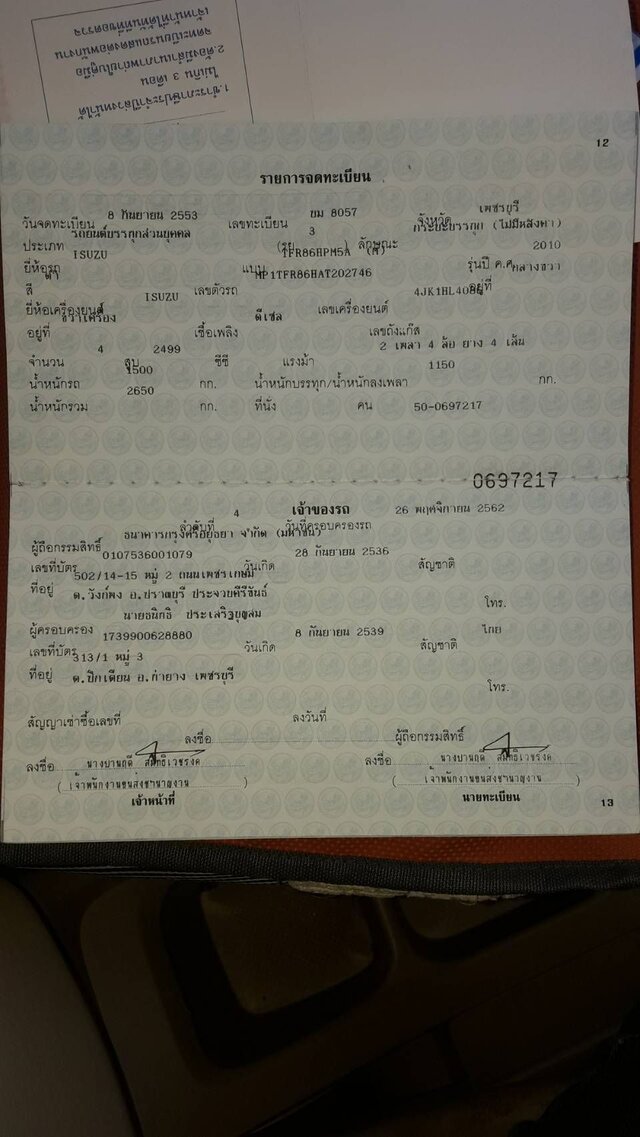 1.ชำระภาษีประจำปีล่วงหน้าได้
ไม่เกิน 3 เดือน
12
รายการจดทะเบียน
วันจดทะเบียน 8 กันยายน 2553 เลขทะเบียน ยม 8057 จังหวัด เพชรบุรี
ประเภท รถยนต์บรรทุกส่วนบุคคล (รย 3 ) ลักษณะ กระบะบรรทุก (ไม่มีหลังคา)
ยี่ห้อรถ ISUZU แบบ TFR86HPM5A รุ่นปี ค.ศ. 2010
สี ดำ เลขตัวรถ MP1TFR86HAT202746 อยู่ที่ กลางขวา
ยี่ห้อเครื่องยนต์ ISUZU เลขเครื่องยนต์
อยู่ที่ ขวาเครื่อง เชื้อเพลิง ดีเซล เลขถังแก๊ส
จำนวน 4 สูบ 2499 ซีซี แรงม้า 2 เพลา 4 ล้อ ยาง 4 เส้น
น้ำหนักรถ 1500 กก. น้ำหนักบรรทุก/น้ำหนักลงเพลา 1150 กก.
น้ำหนักรวม 2650 กก. ที่นั่ง คน 50-0697217
0697217
เจ้าของรถ
ลำดับที่ 4 วันที่ครอบครองรถ 26 พฤศจิกายน 2562
ผู้ถือกรรมสิทธิ์ ธนาคารกรุงศรีอยุธยา จำกัด (มหาชน)
เลขที่บัตร 0107536001079 วันเกิด 28 กันยายน 2536 สัญชาติ
ที่อยู่ 502/14-15 หมู่ 2 ถนนเพชรเกษม
ต.วังก์พง อ.ปราณบุรี ประจวบคีรีขันธ์ โทร.
ผู้ครอบครอง นายธนิกธิ
เลขที่บัตร 1739900628880 วันเกิด 8 กันยายน 2539 สัญชาติ ไทย
ที่อยู่ 313/1 หมู่ 3
ต.ปึกเตียน อ.ท่ายาง เพชรบุรี
โทร.
สัญญาเช่าซื้อเลขที่ ลงวันที่
ลงชื่อ ผู้ถือกรรมสิทธิ์
ลงชื่อ ลงชื่อ
(เจ้าพนักงานขนส่งชำนาญงาน ) (เจ้าพนักงานขนส่งชำนาญงาน )
เจ้าหน้าที่ นายทะเบียน
13